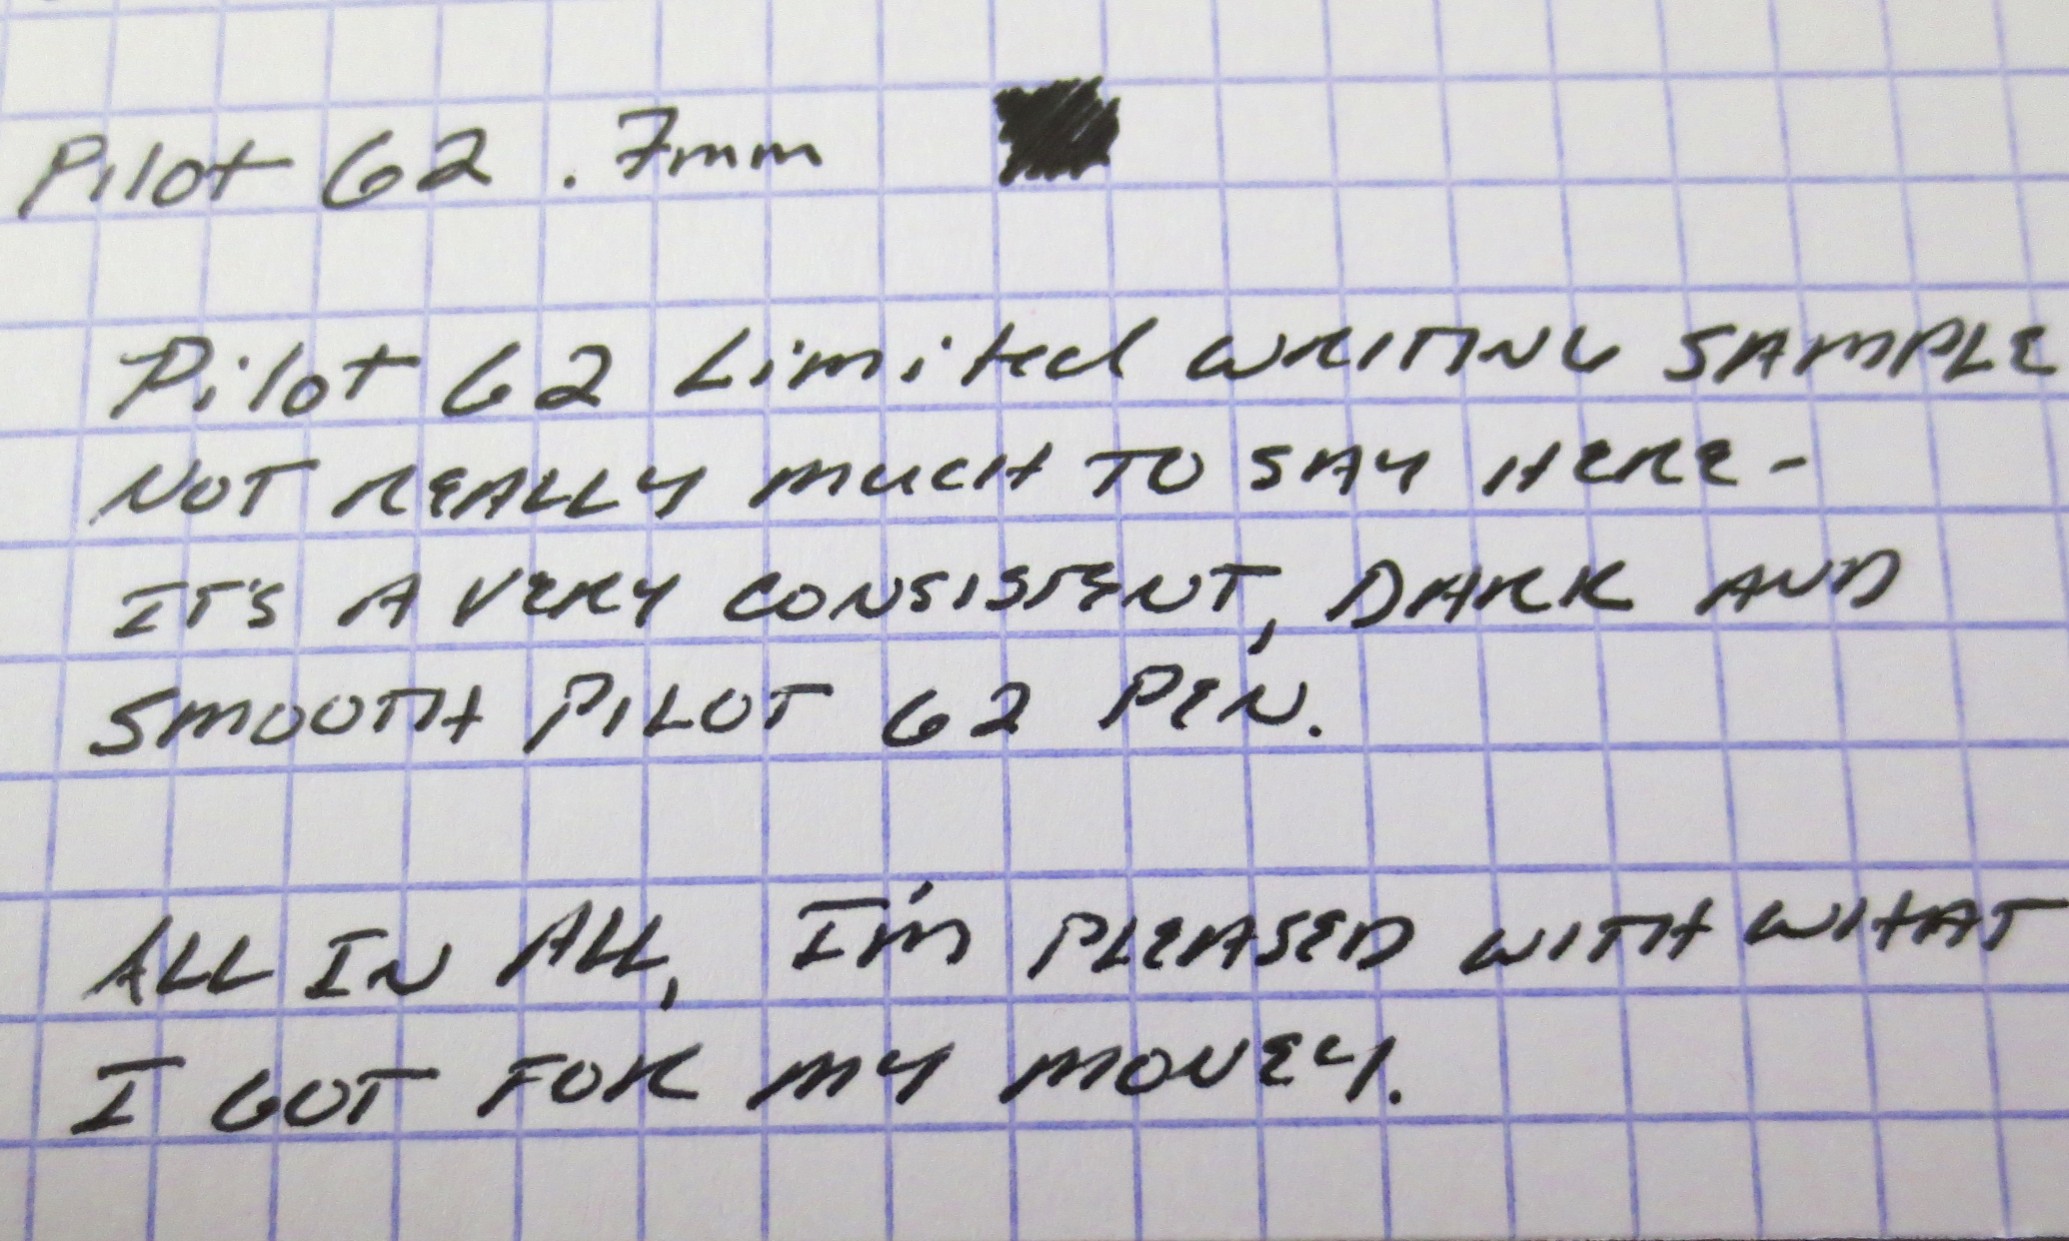 Pilot G2 .7mm
Pilot G2 Limited WRITING SAMPLE
NOT REALLY MUCH TO SAY HERE-
IT'S A VERY CONSISTENT, DARK AND
SMOOTH PILOT G2 PEN.
ALL IN ALL, I'M PLEASED WITH WHAT
I GOT FOR MY MONEY.